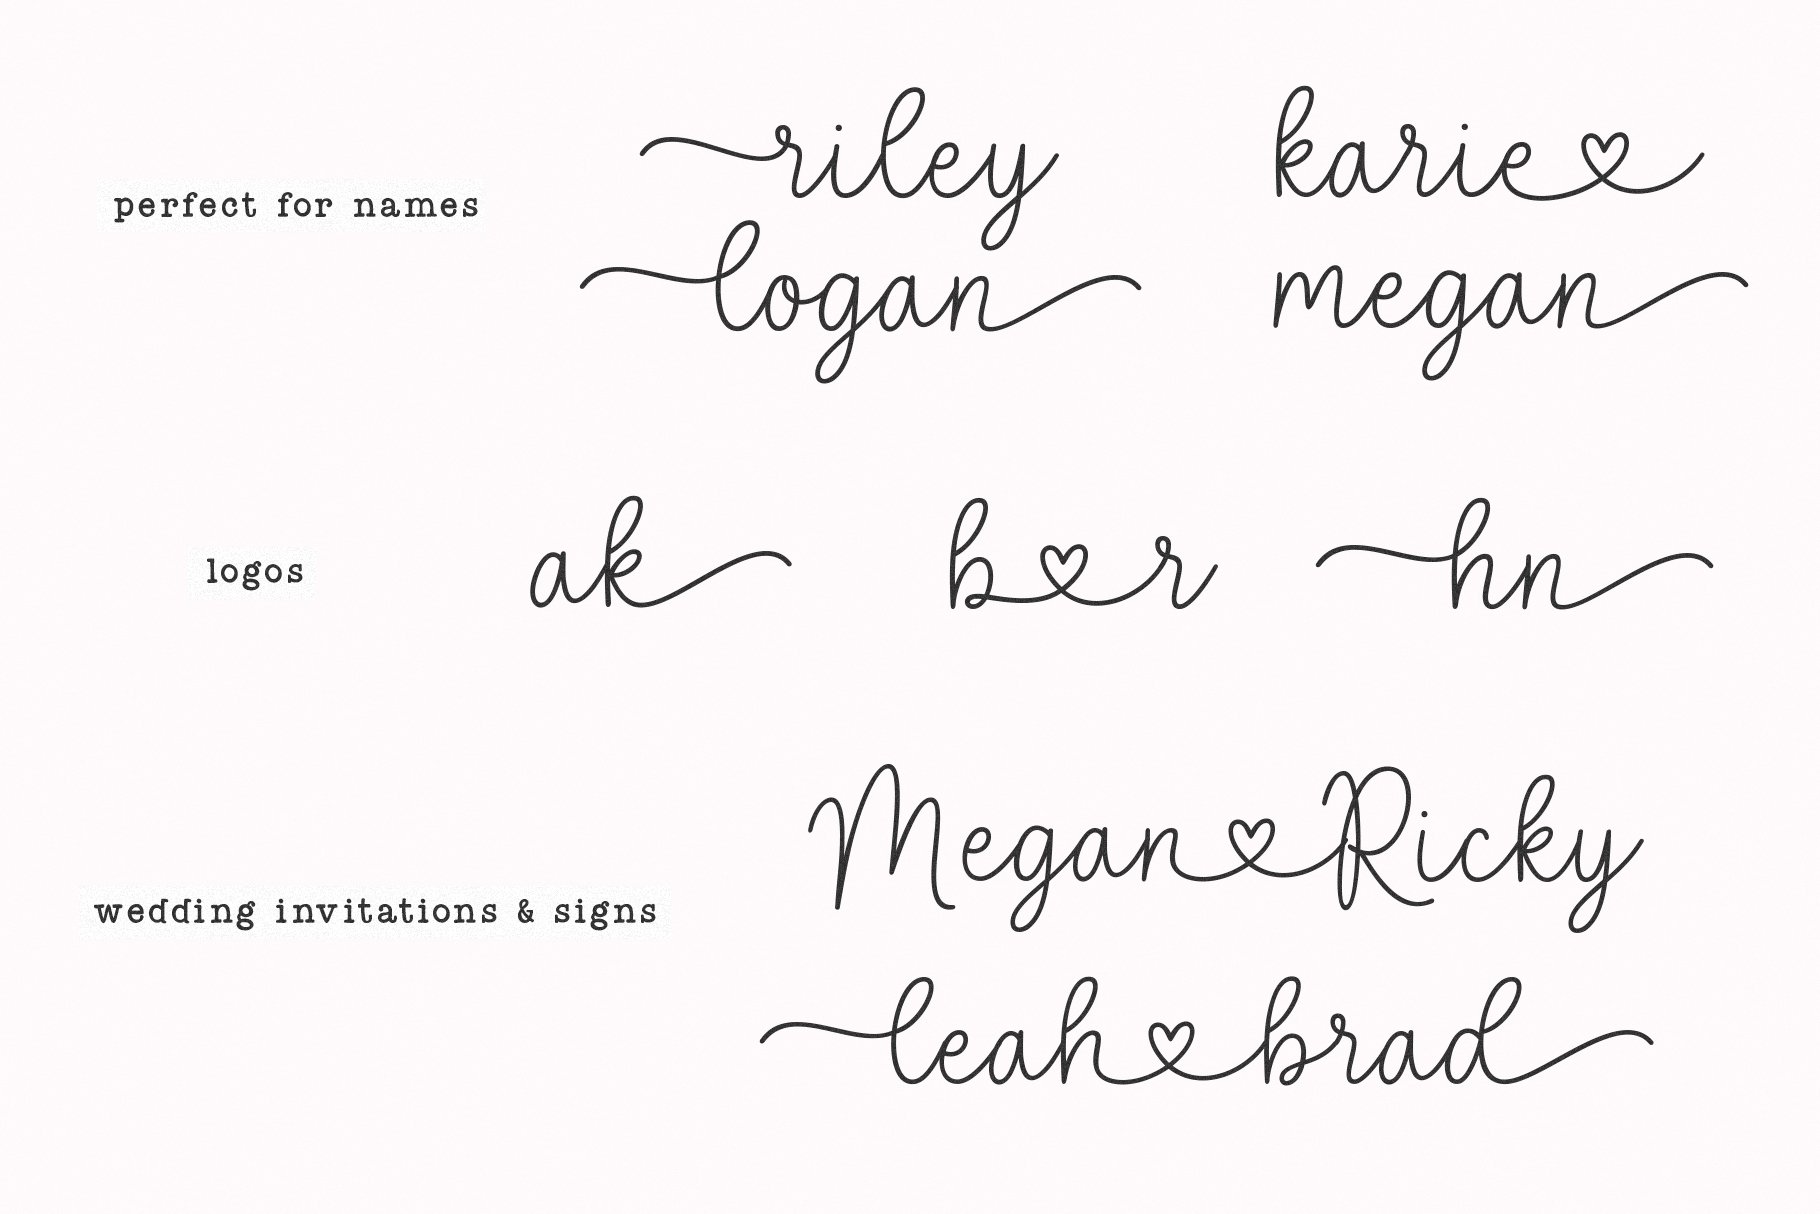 riley karie♡
perfect for names
logan megan
logos ak b♡r hn
Megan♡Ricky
wedding invitations & signs
leah♡brad